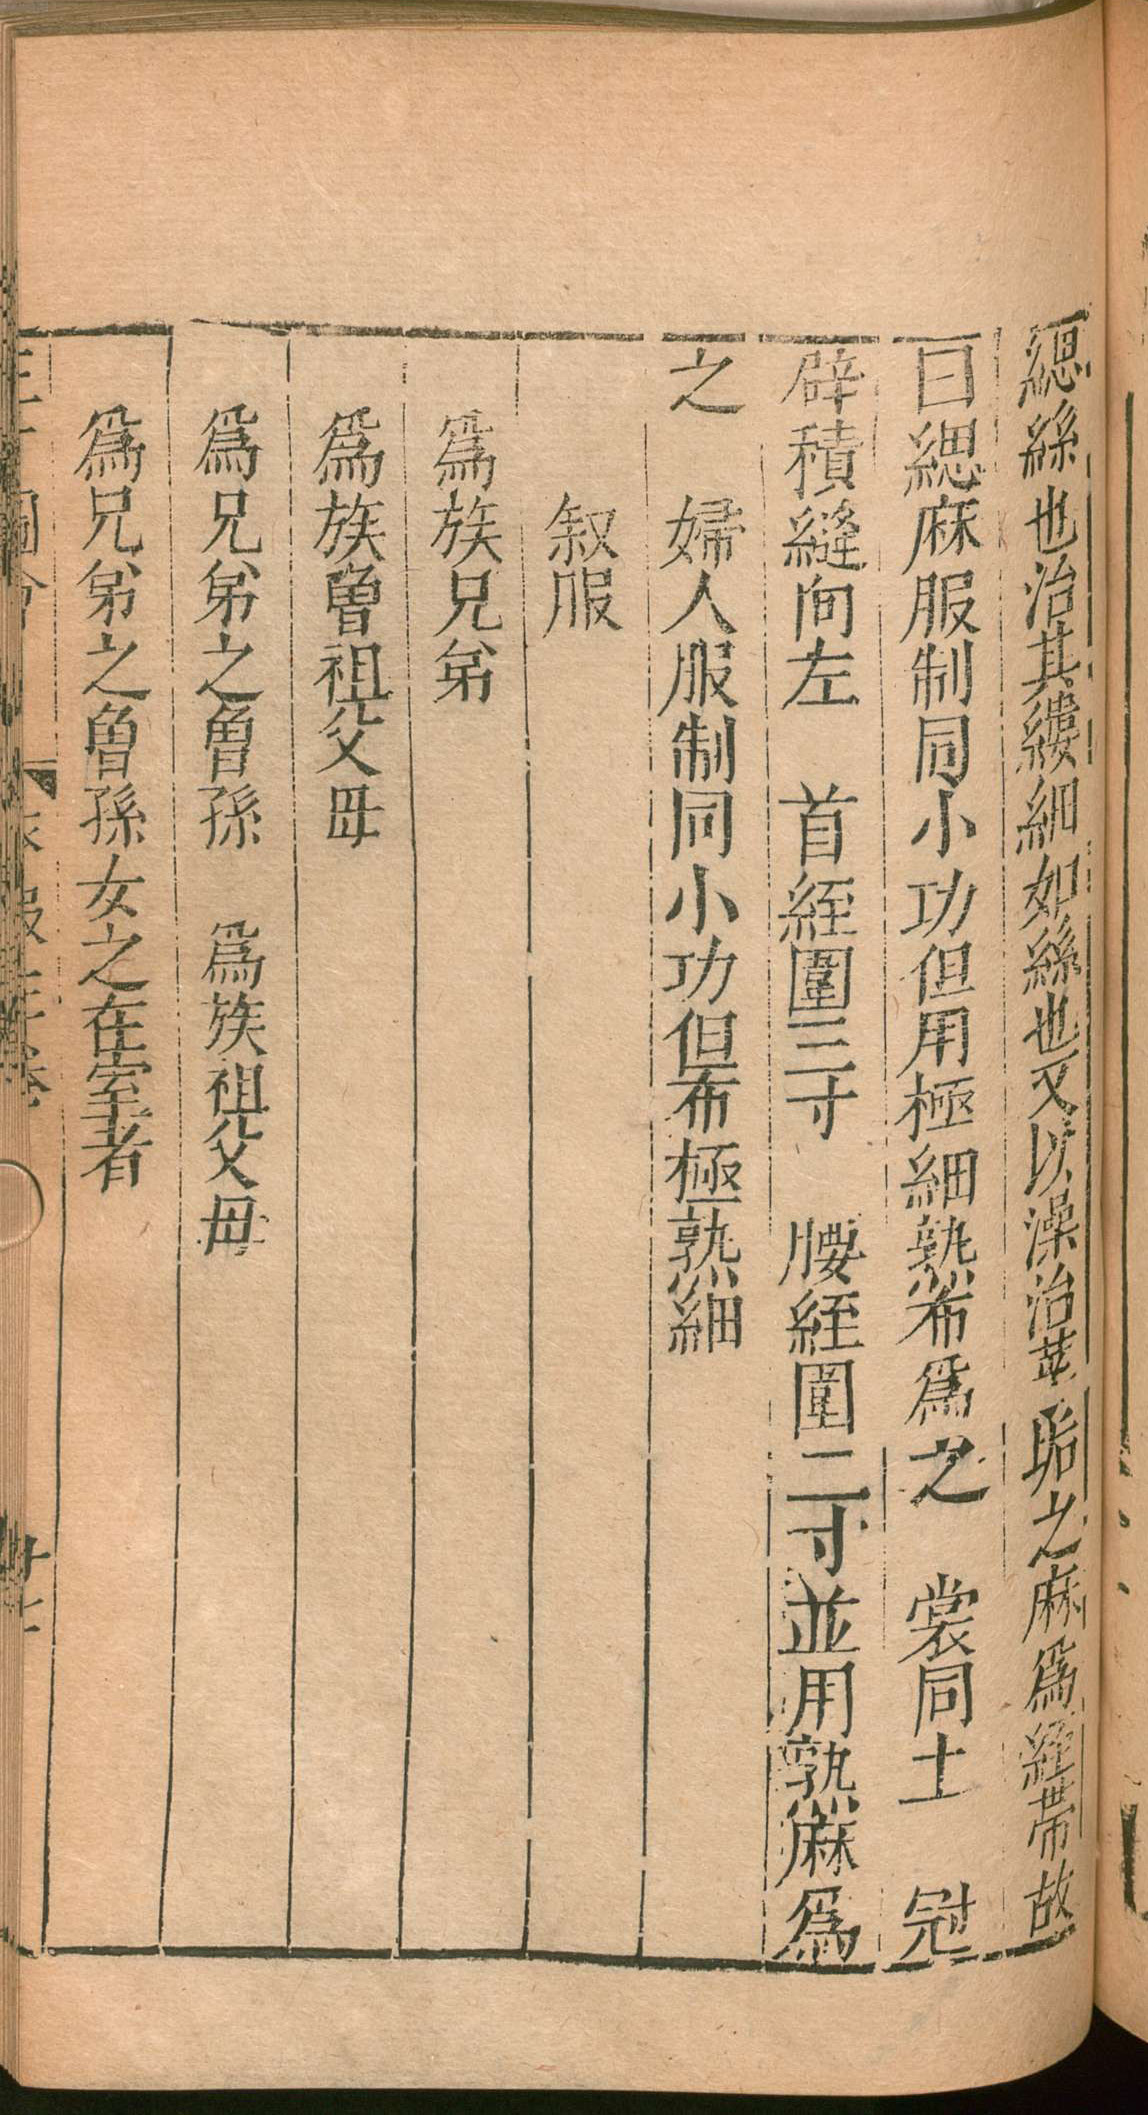 緦絲也治其縷細如絲也又以澡治莩垢之麻爲絰帶故
曰緦麻服制同小功但用極細熟布爲之　裳同上　冠
辟積縫向左　首絰圍三寸　腰絰圍二寸並用熟麻爲
之　婦人服制同小功但布極熟細
叙服
爲族兄弟
爲族曾祖父母
爲兄弟之曾孫　爲族祖父母
爲兄弟之曾孫女之在室者